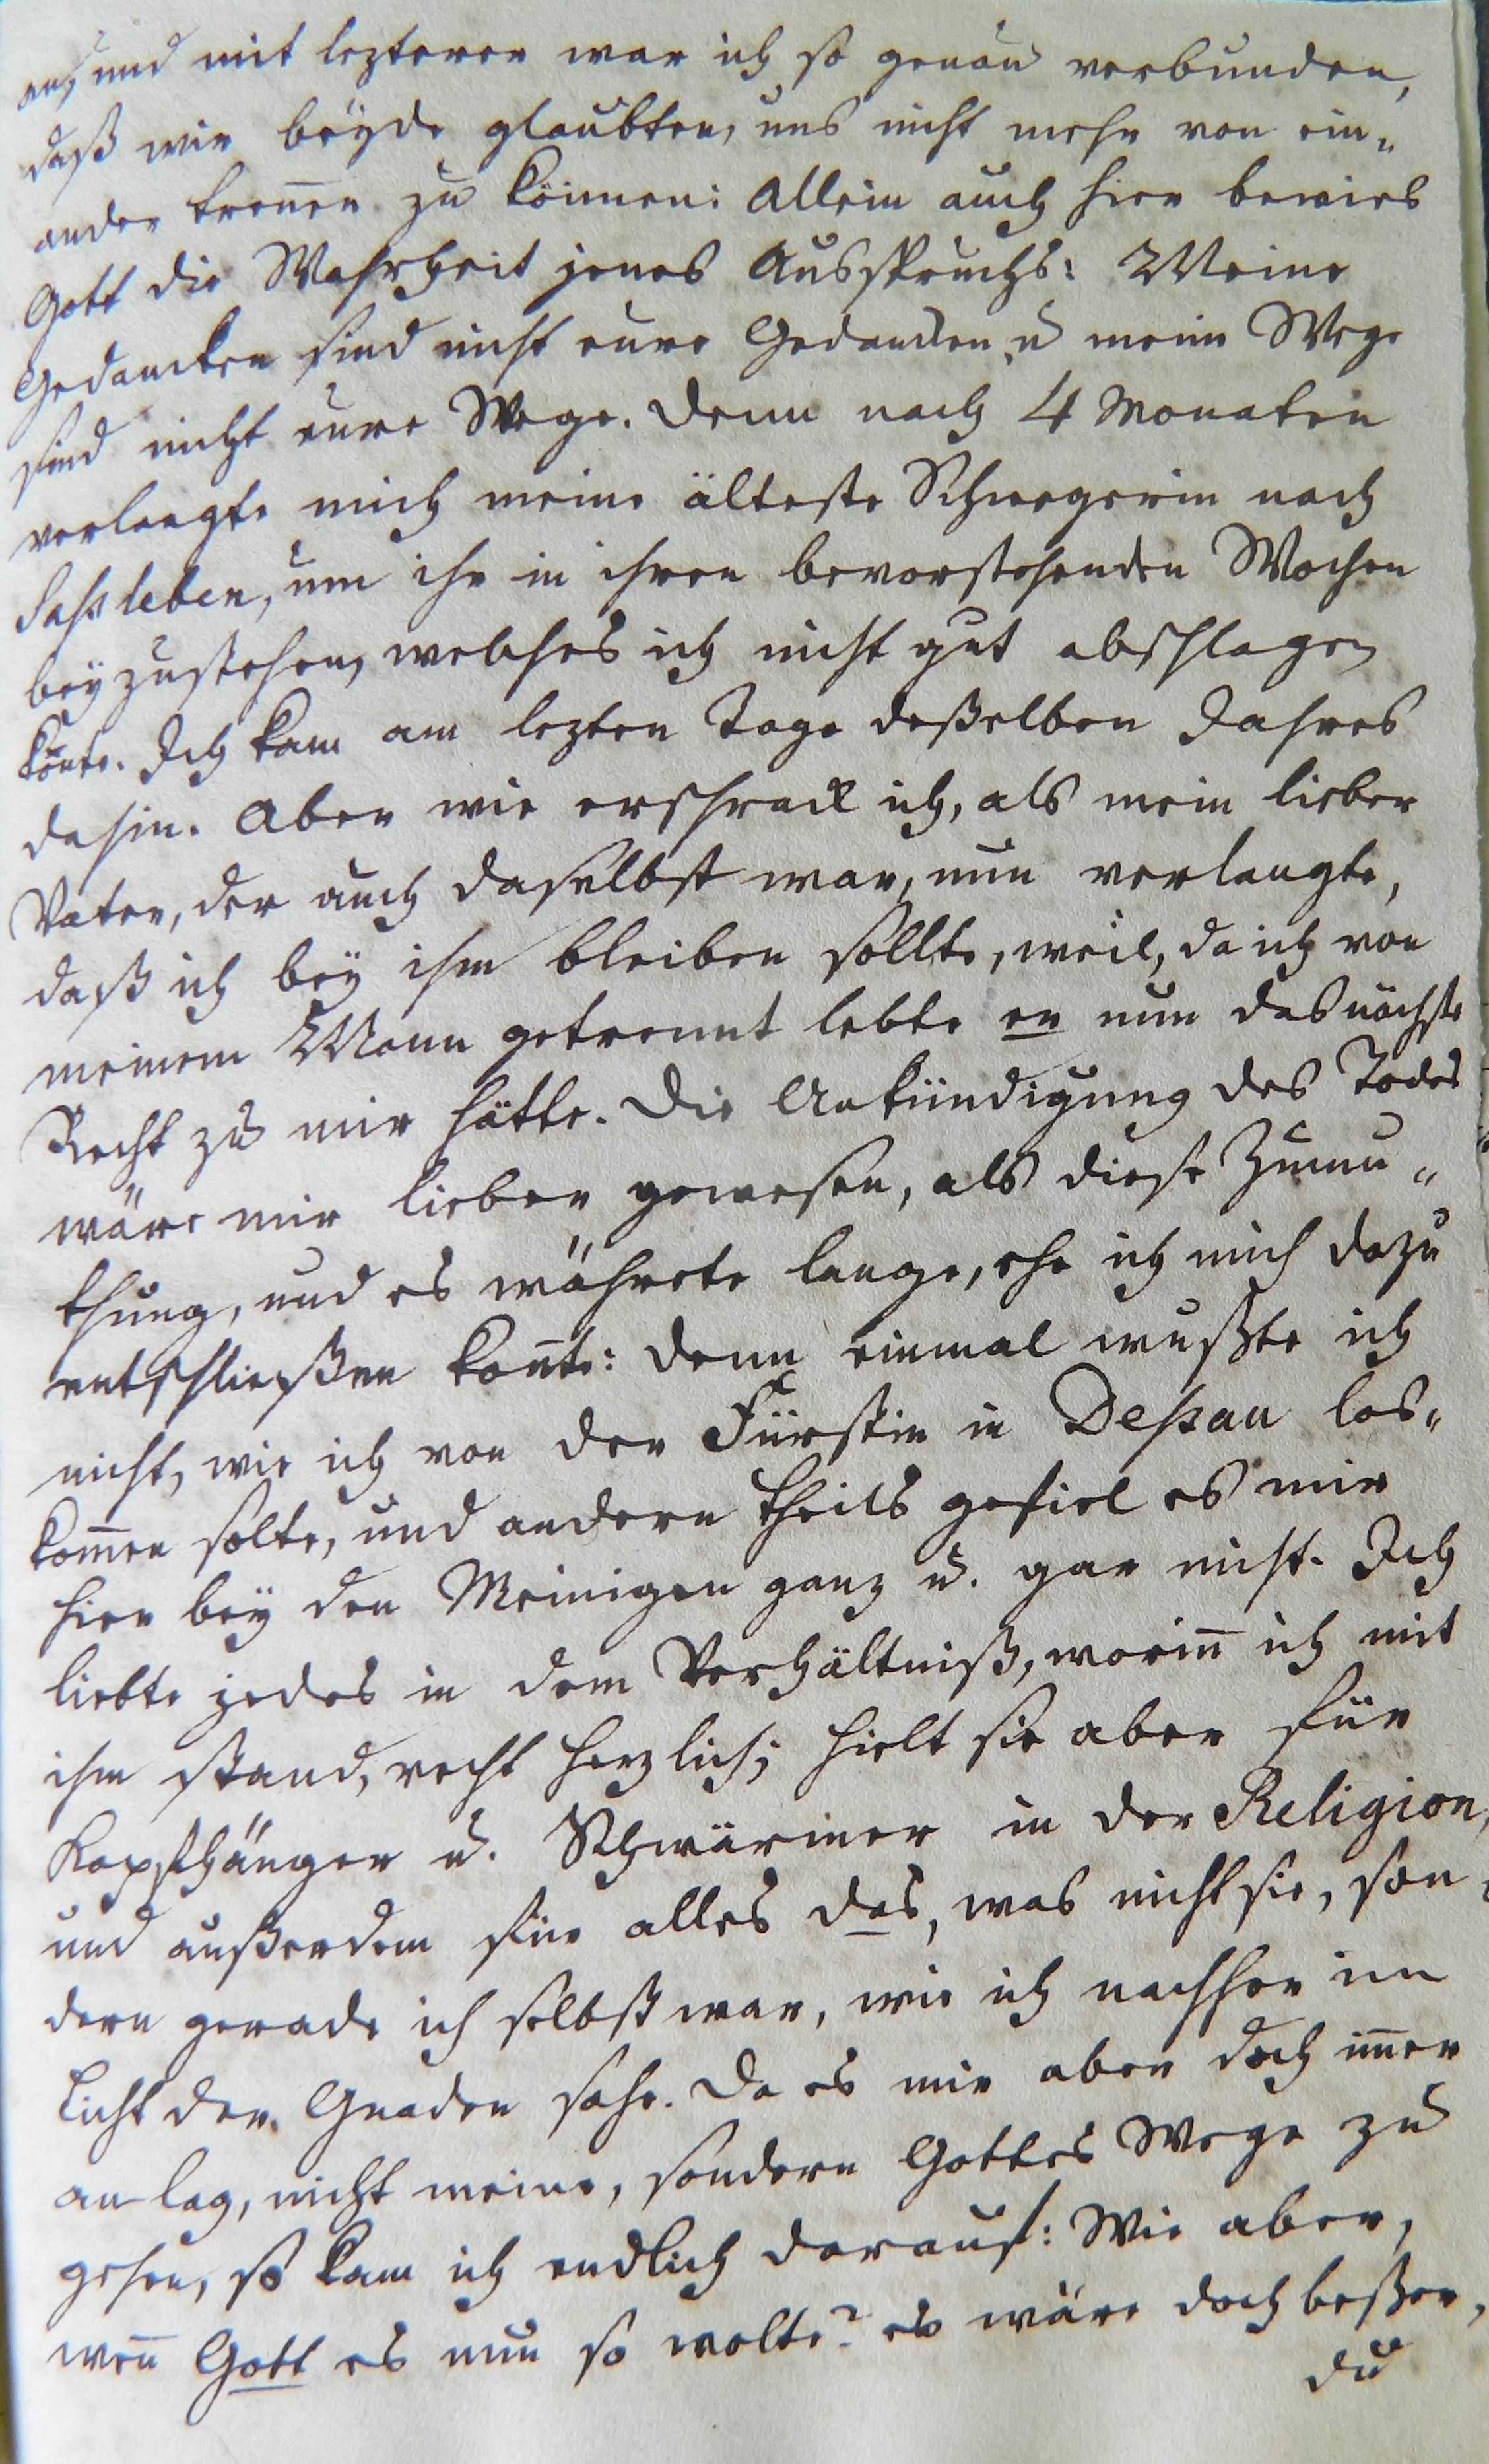 an, und mit lezterer war ich so genau verbunden,
daß wir beyde glaubten, uns nicht mehr von ein„
ander trenen zu können: Allein auch hier bewies
Gott die Wahrheit jenes Ausspruchs: Meine
Gedancken sind nicht eure Gedancken, u meine Wege
sind nicht eure Wege. Denn nach 4 Monaten
verlangte mich meine älteste Schwegerin nach
Saßleben, um ihr in ihren bevorstehenden Wochen
beyzustehen, welches ich nicht gut abschlagen
konte. Ich kam am lezten Tage deßelben Jahres
dahin. Aber wie erschrack ich, als mein lieber
Vater, der auch daselbst war, nun verlangte,
daß ich bey ihm bleiben sollte, weil, da ich von
meinem Mann getrennt lebte er nun das nächste
Recht zu mir hätte. Die Ankündigung des Todes
wäre mir lieber gewesen, als diese Zumu„
thung, und es währete lange, ehe ich mich dazu
entschließen konte: denn einmal wußte ich
nicht, wie ich von der Fürstin in Deßau los„
komen solte, und andern theils gefiel es mir
hier bey den Meinigen ganz u. gar nicht. Ich
liebte jedes in dem Verhältniß, worin ich mit
ihm stand, recht herzlich; hielt sie aber für
Kopfhänger u. Schwärmer in der Religion,
und außerdem für alles das, was nicht sie, son„
dern gerade ich selbst war, wie ich nachher im
Licht der Gnaden sahe. Da es mir aber doch imer
an lag, nicht meine, sondern Gottes Wege zu
gehen, so kam ich endlich darauf: Wie aber,
wen Gott es nun so wolte? es wäre doch beßer,
du